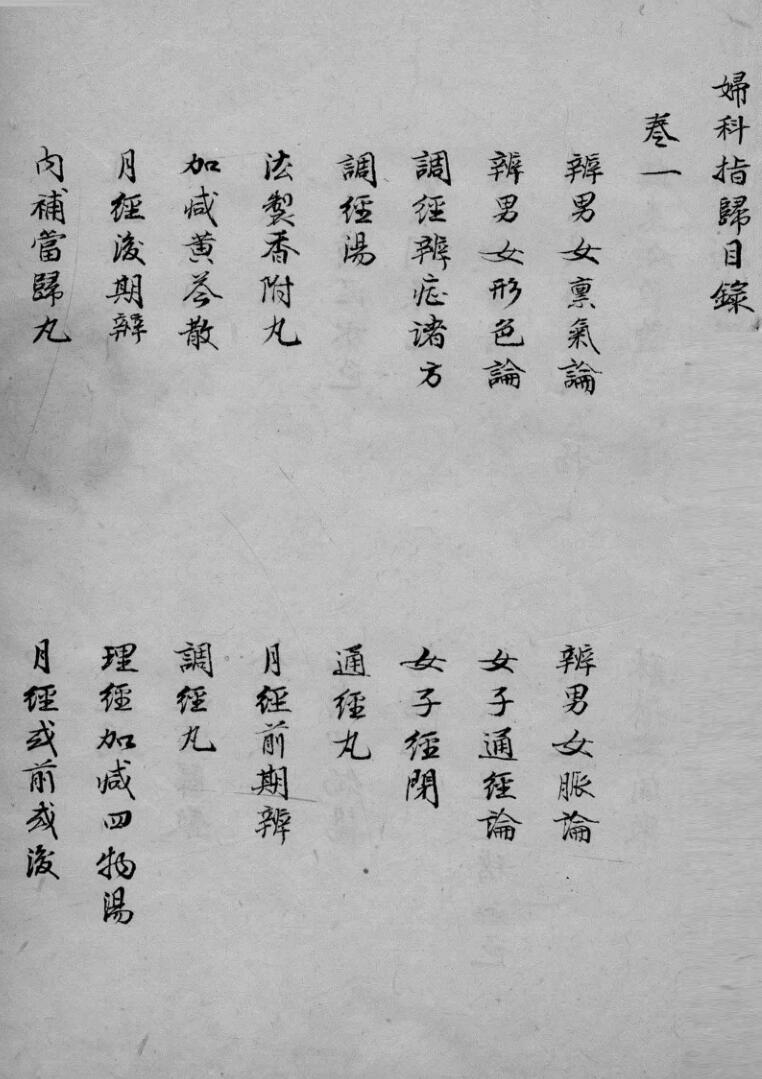 婦科指歸目錄
卷一
辨男女禀氣論
辨男女脈論
辨男女形色論
女子通經論
調經辨症諸方
女子經閉
調經湯
通經丸
法製香附丸
月經前期辨
加减黄芩散
調經丸
月經後期辨
理經加减四物湯
內補當歸丸
月經或前或後